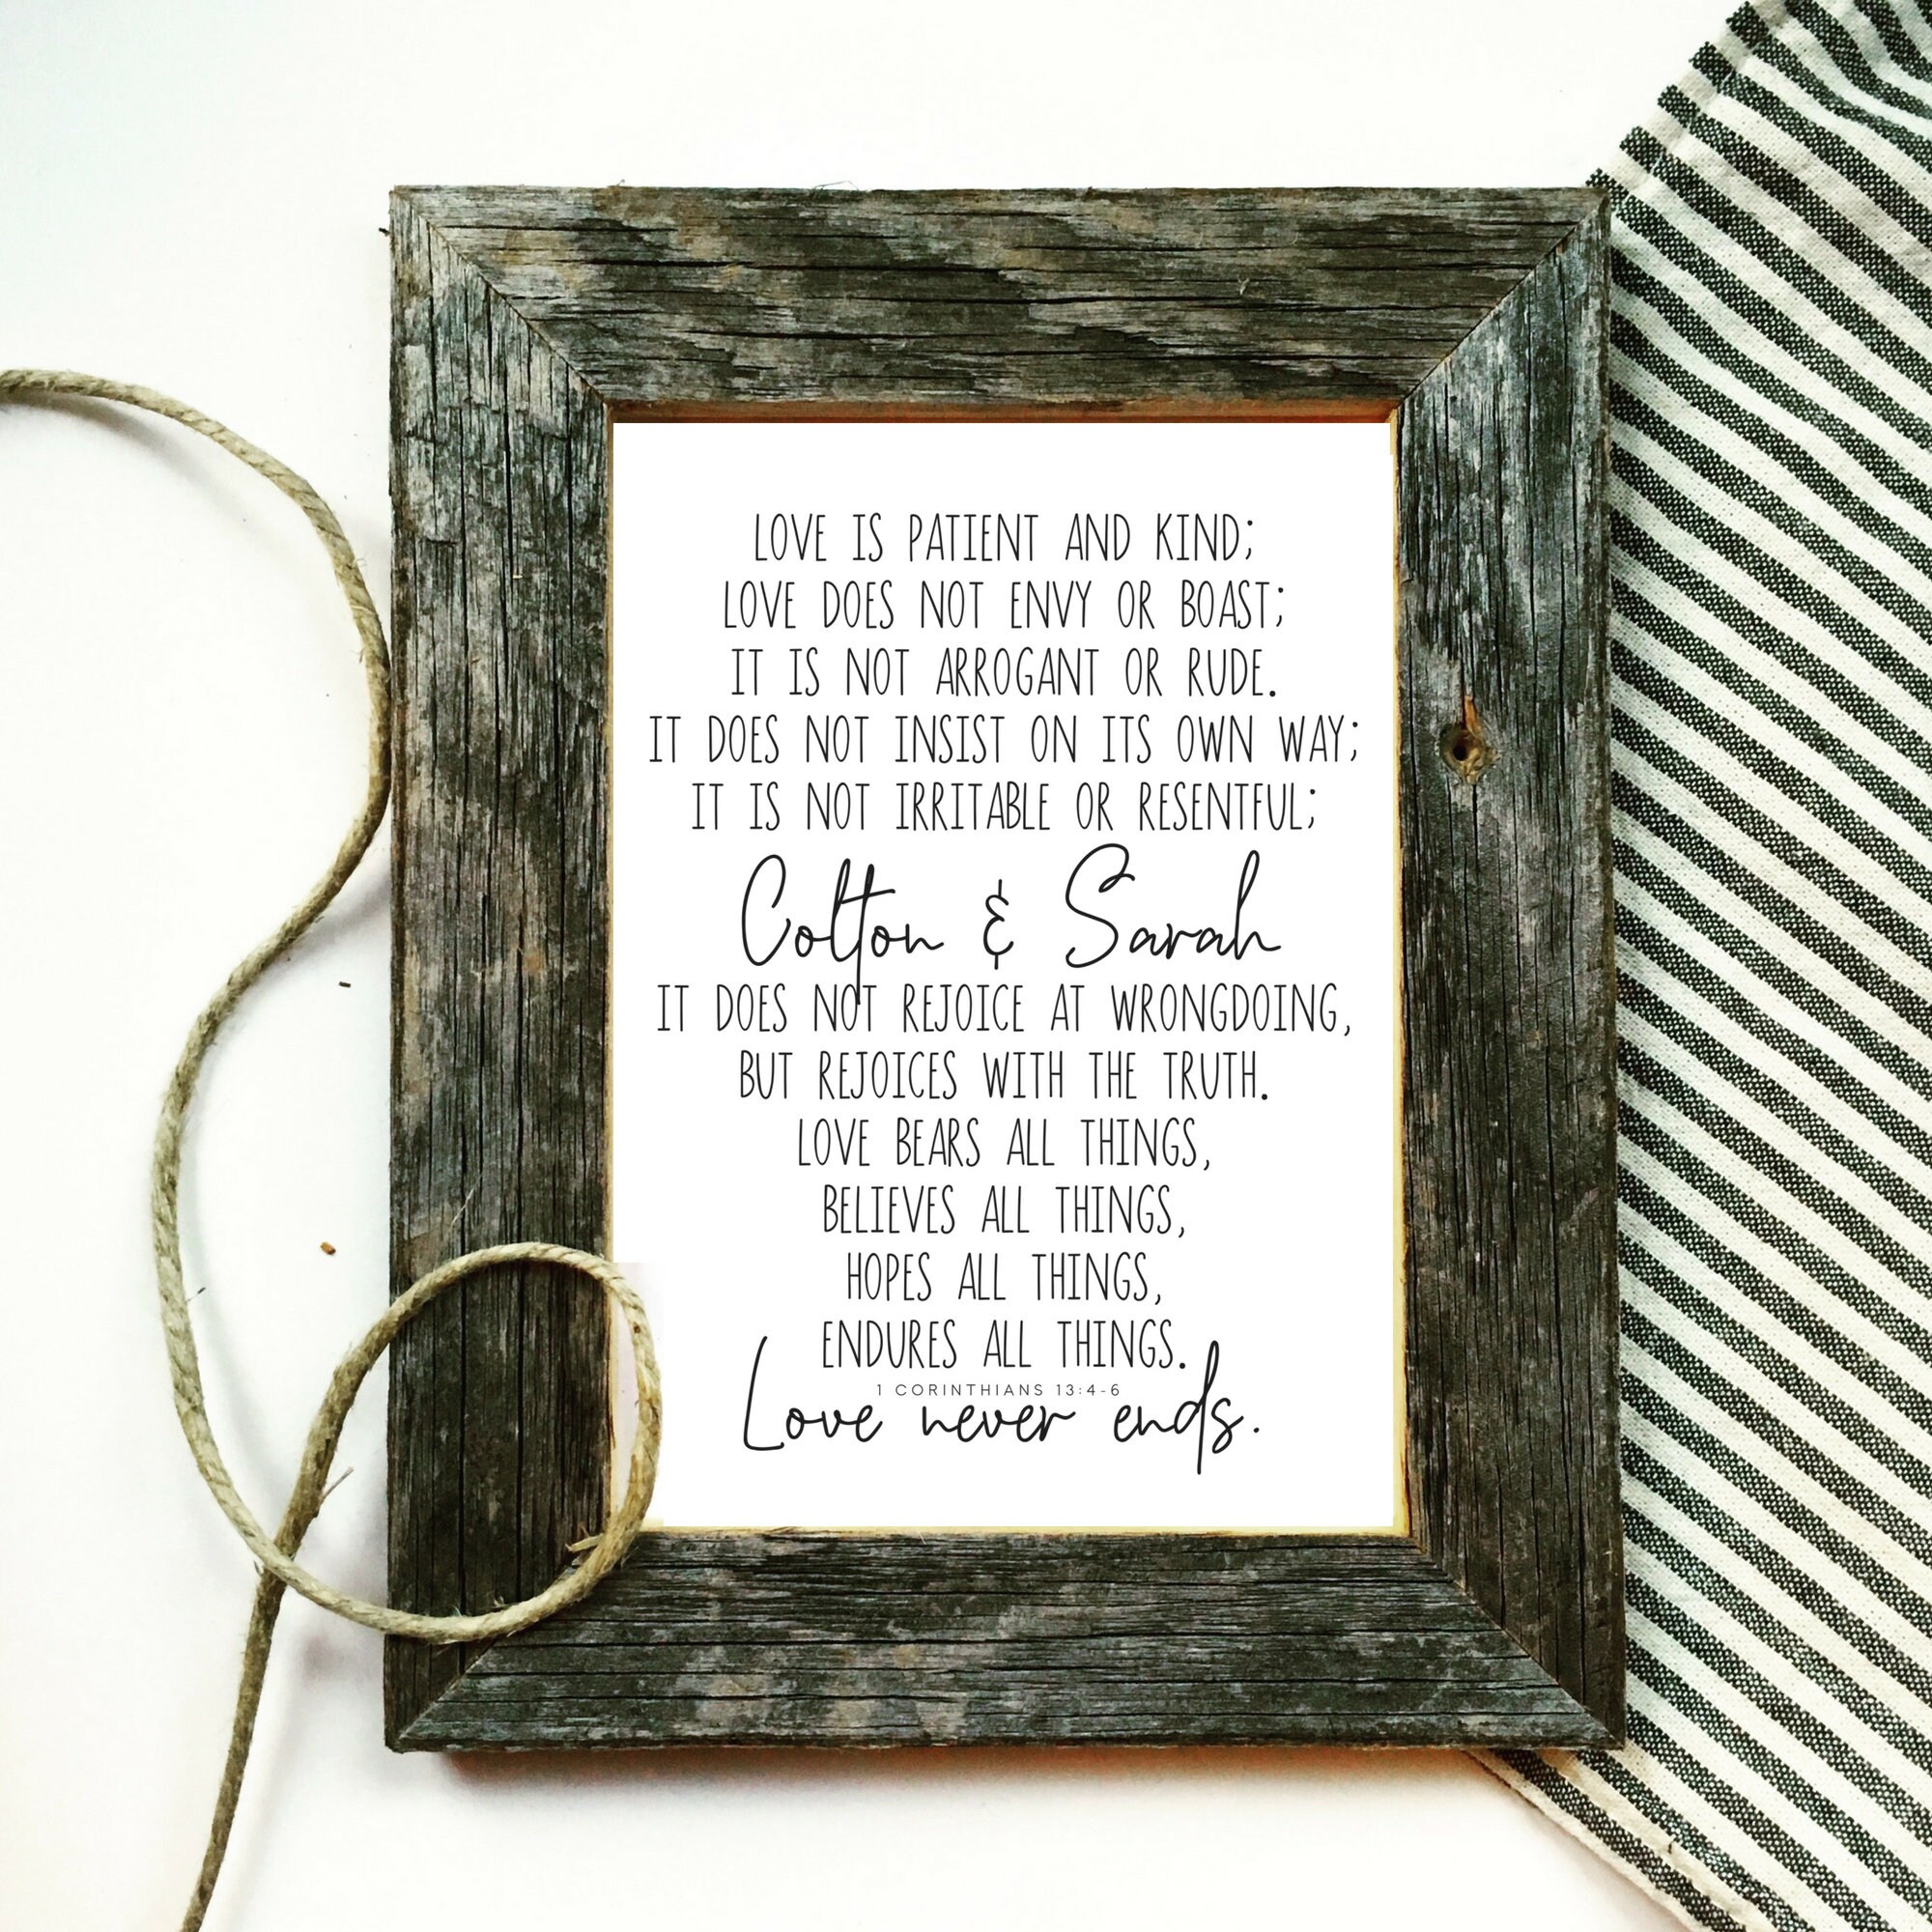 LOVE IS PATIENT AND KIND;
LOVE DOES NOT ENVY OR BOAST;
IT IS NOT ARROGANT OR RUDE.
IT DOES NOT INSIST ON ITS OWN WAY;
IT IS NOT IRRITABLE OR RESENTFUL;
Colton & Sarah
IT DOES NOT REJOICE AT WRONGDOING,
BUT REJOICES WITH THE TRUTH.
LOVE BEARS ALL THINGS,
BELIEVES ALL THINGS,
HOPES ALL THINGS,
ENDURES ALL THINGS.
1 CORINTHIANS 13:4-6
Love never ends.